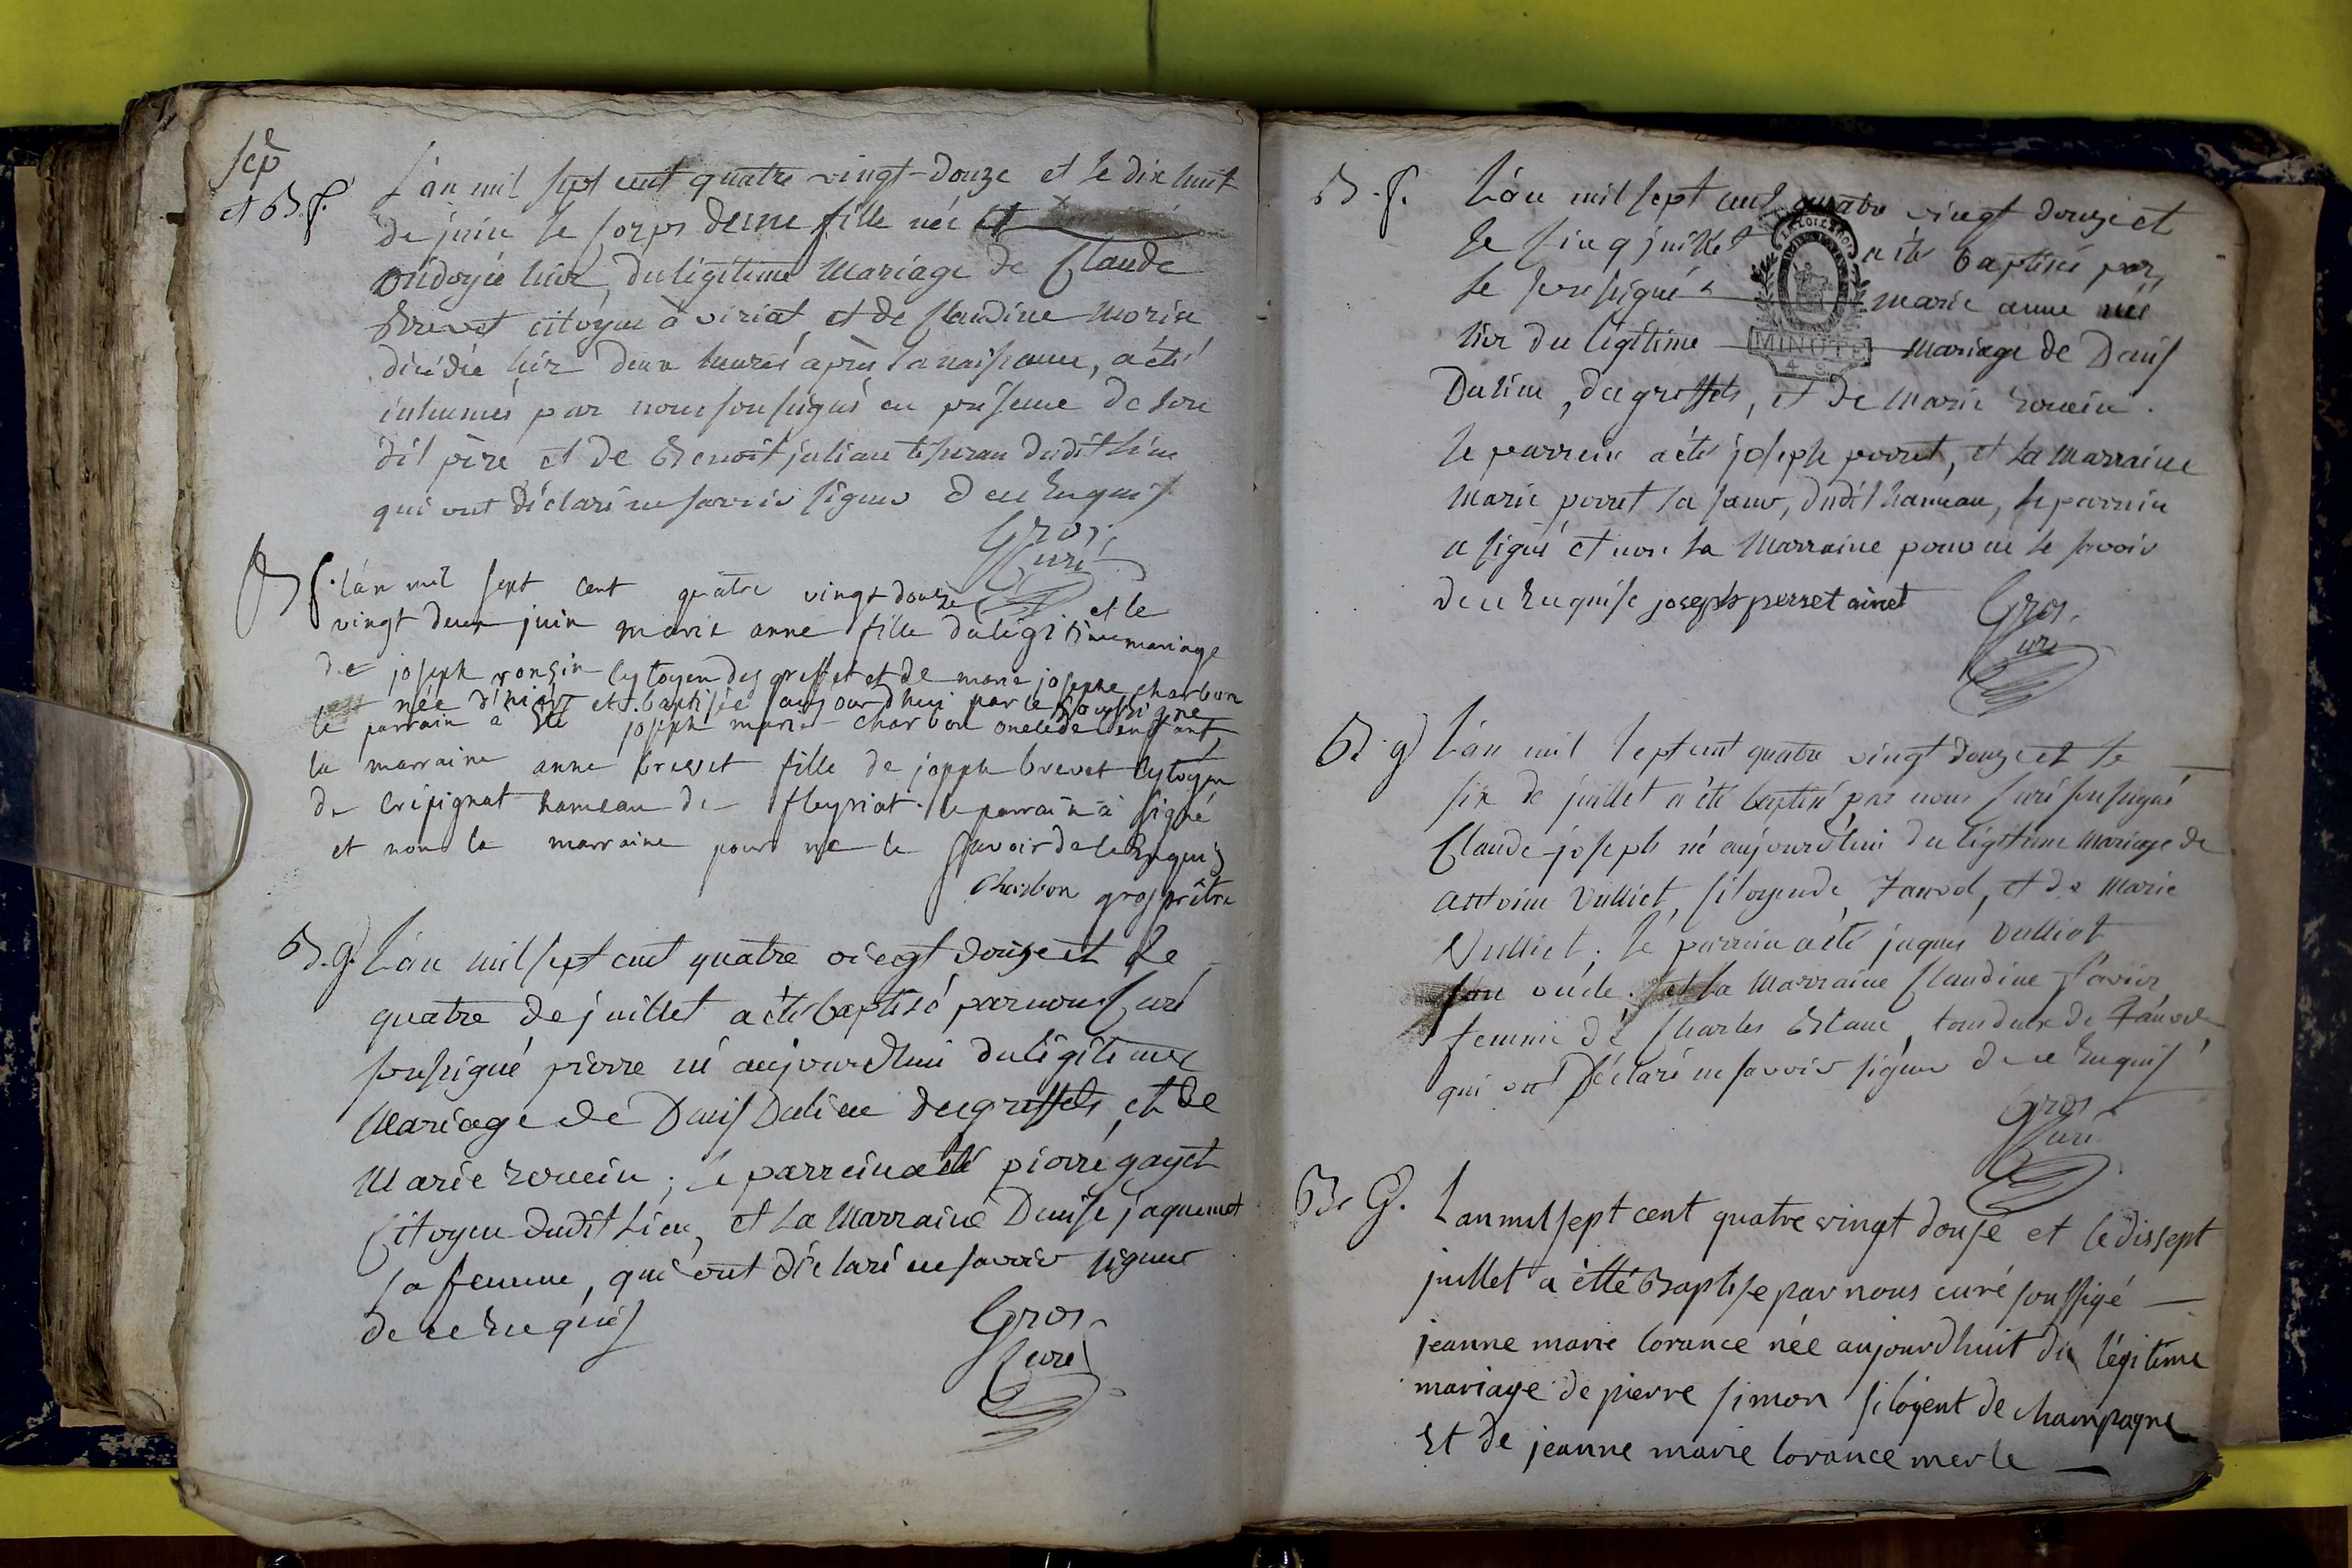 sep
et B. f.
L'an mil sept cent quatre vingt-douze et le dix huit
de juin le corps d'une fille née et
ondoyée hier, du légitime mariage de Claude
Brevet citoyen à viriat et de Claudine Morin
décédée hier deux heures après sa naissance, a été
inhumés par nous soussigné en présence de son
dit père et de Benoit julian dudit lieu
qui ont déclaré ne savoir signer de ce Enquis
Gros
Curé
B f. l'an mil sept cent quatre vingt douze et le
vingt deux juin marie anne fille du légitime mariage
de joseph ronsin cytoyen des greffet et de marie josephe charbon
née d'hier et baptisée aujourdhui par le soussigné
le parrain a été joseph marie charbon oncle de l'enffant
la marraine anne brevet fille de joseph brevet cytoyen
de crépignat hameau de fleyriat. le parrain à signé
et non la marraine pour ne le savoir de ce Enquis
Charbon gros prêtre
B. g. L'an mil sept cent quatre vingt douze et le
quatre de juillet a été baptisé par nous Curé
soussigné pierre né aujourdhui du légitime
Mariage de Denis Dulieu des greffets, et de
Marie roncin; le parrein a été pierre gayet
Citoyen dudit lieu, et la Marraine Denise jaquemet
sa femme, qui ont déclaré ne savoir signer
de ce Enquis
Gros
Curé
B. f. L'an mil sept cent quatre vingt douze et
le cinq juillet a été baptisée par
le soussigné marie anne née
hier du légitime mariage de Denis
Dulieu, des greffets, et de Marie roncin.
le parrein a été joseph perret, et la Marraine
Marie perret sa soeur, dudit hameau, le parrein
a signé et non la Marraine pour ne le savoir
de ce Enquise joseph perret ainet
Gros
Curé
LA LOI LE ROI
MINUTE
4 S.
B. g) L'an mil sept cent quatre vingt douze et le
six de juillet a été baptisé par nous Curé soussigné
Claude-joseph né aujourdhui du légitime Mariage de
Antoine Vulliet, Citoyen de Tanvol, et de Marie
Vulliet; le parrein a été jaques Vulliot
son oncle. et la Marraine Claudine favier
femme de Charles Blanc, de Tanvol
qui ont déclaré ne savoir signer de ce Enquis
Gros
Curé
B. G. L an mil sept cent quatre vingt douse et le dissept
juillet a étté Baptise par nous curé soussigé
jeanne marie lorance née aujourdhuit du légitime
mariage de pierre simon sitoyent de champagne
Et de jeanne marie lorance merle